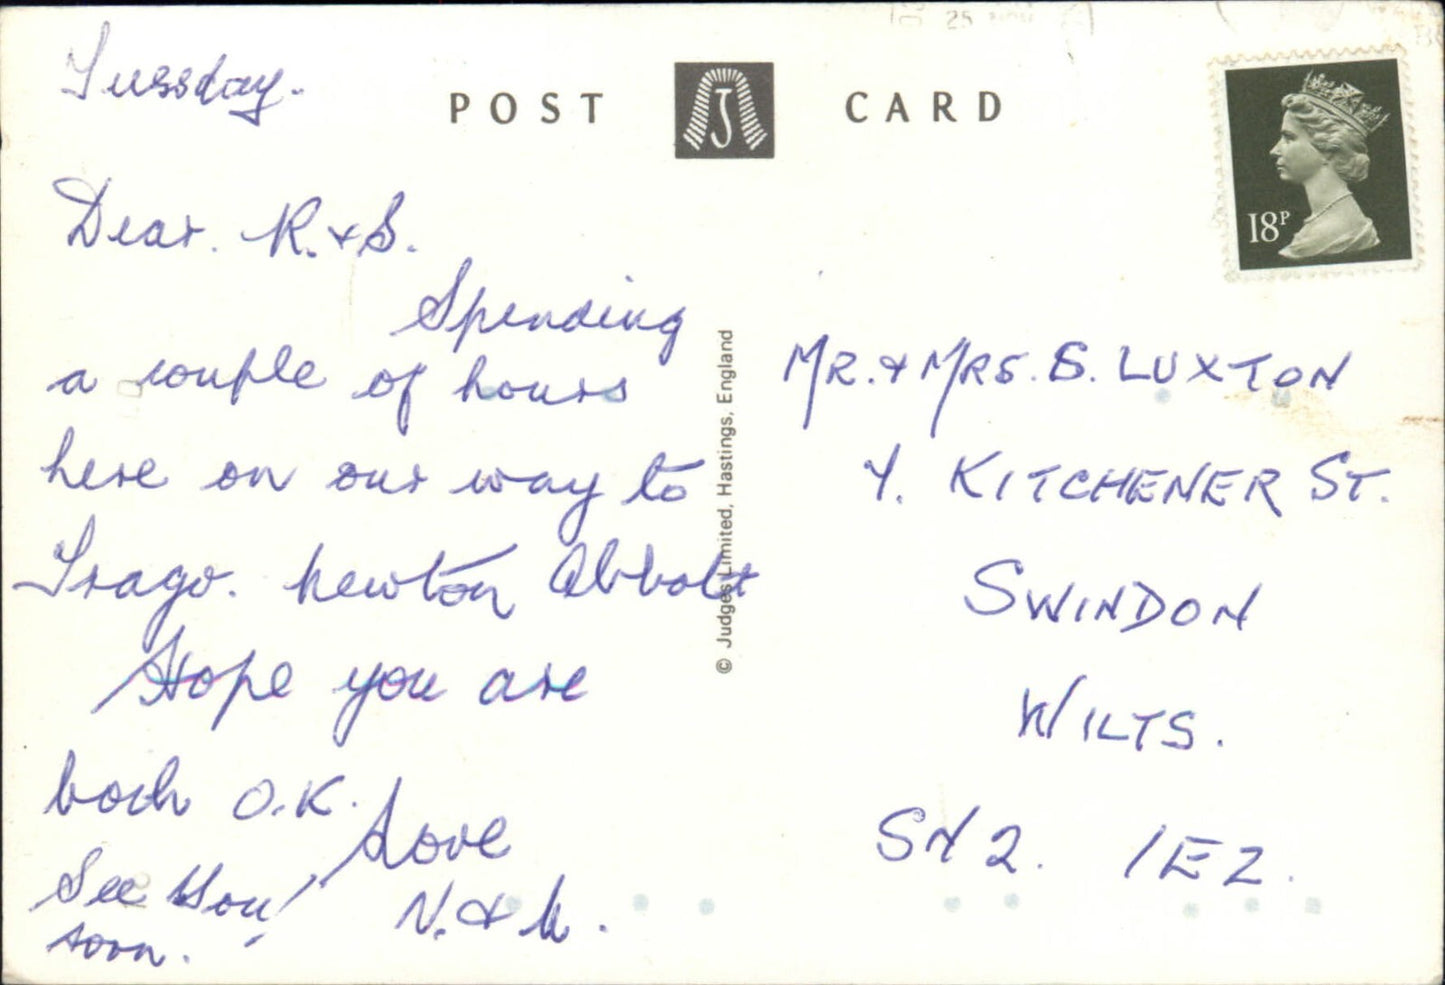 Tuesday.
POST CARD
J
18P
Dear. R. & S.
Spending
a couple of hours
here on our way to
Trago. Newton Abbolt
Hope you are
both O.K.
Love
See You!
soon.
N. &
© Judges Limited, Hastings, England
MR. & MRS. S. LUXTON
KITCHENER ST.
SWINDON
WILTS.
SN2. 1EZ.
25